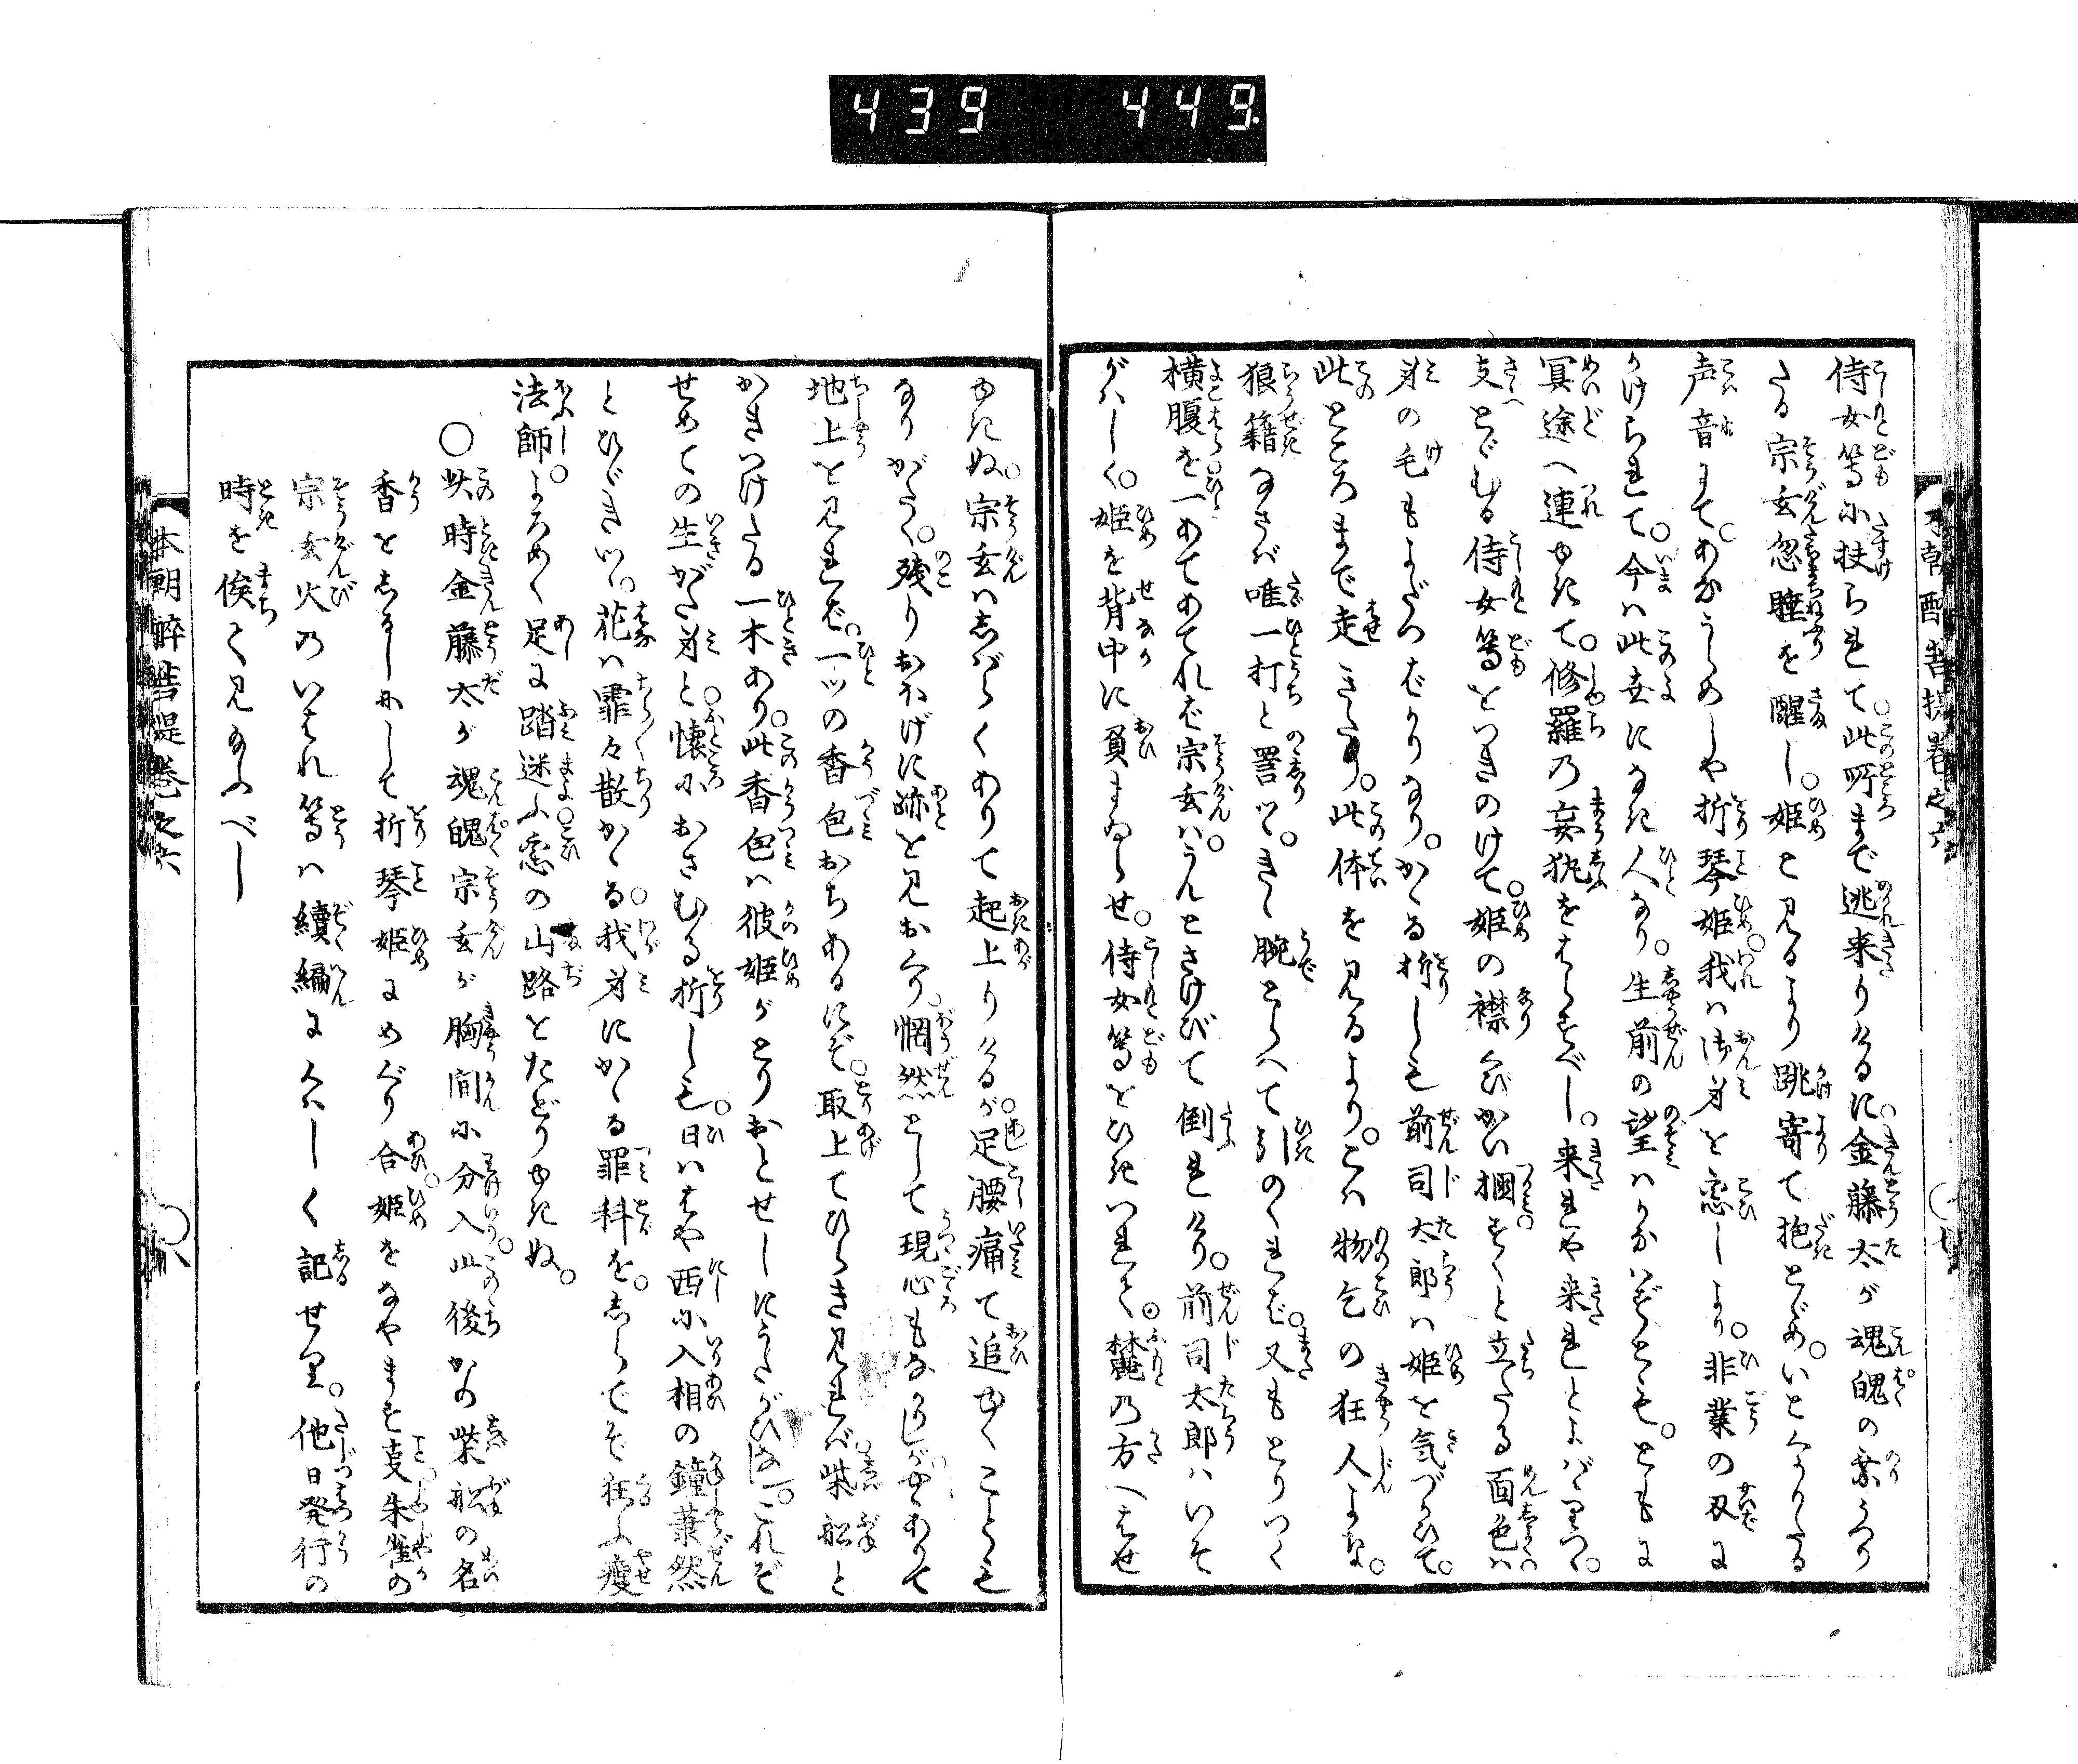 439 449
本朝酔菩提巻之六
侍女等に扶られて。此所まで逃来りけるに。金藤太が魂魄の乗うつり
たる宗玄忽睡を醒し。姫と見るより跳寄て抱とゞめ。いとくるしげなる
声音にて。あなうらめしや折琴姫。我は御身を恋しより。非業の刄に
かけられて。今は此世になき人なり。生前の望はかなはずとも。ともに
冥途へ連ゆきて。修羅の妄執をはらすべし。来れや来れとよばゝりつゝ。
支とゞむる侍女等をつきのけて。姫の襟がみかい掴すくと立たる面色は
身の毛もよだつばかりなり。かゝる折しも前司太郎は姫を気づかひて。
此ところまで走きたり。此体を見るより。こは物乞の狂人よな。
狼籍なさば唯一打と詈ツヽ。きゝ腕とらへて引のくれば。又もとりつく
横腹を一あてあてれば宗玄は。うんとさけびて倒れけり。前司太郎はいそ
がはしく。姫を背中に負まゐらせ。侍女等をひきつれて。麓の方へはせ
ゆきぬ。宗玄はしばらくありて起上りけるが。足腰痛て追ゆくことも
なりがたく。残りおほげに跡を見おくり。惘然として現心もなかりしが。やゝありて
地上を見れば。一ツの香包おちあるにぞ。取上てひらき見れば。柴船と
かきつけたる一木あり。此香包は彼姫がとりおとせしにうたがひなし。これぞ
せめての生がた身と。懐におさむる折しも。日ははや西に入相の鐘蕭然
とひゞきツヽ。花は霏々散かゝる。我身にかゝる罪科を。しらでぞ狂ふ痩
法師。よろめく足に踏迷ふ恋の山路をたどりゆきぬ。
○此時金藤太が魂魄宗玄が胸間に分入。此後かの柴船の名
香をしるしにして折琴姫にめぐり合。姫をなやます支朱雀の
宗玄火のいはれ等は続編にくはしく記せり。他日発行の
時を俟て見給ふべし
本朝酔菩提巻之六